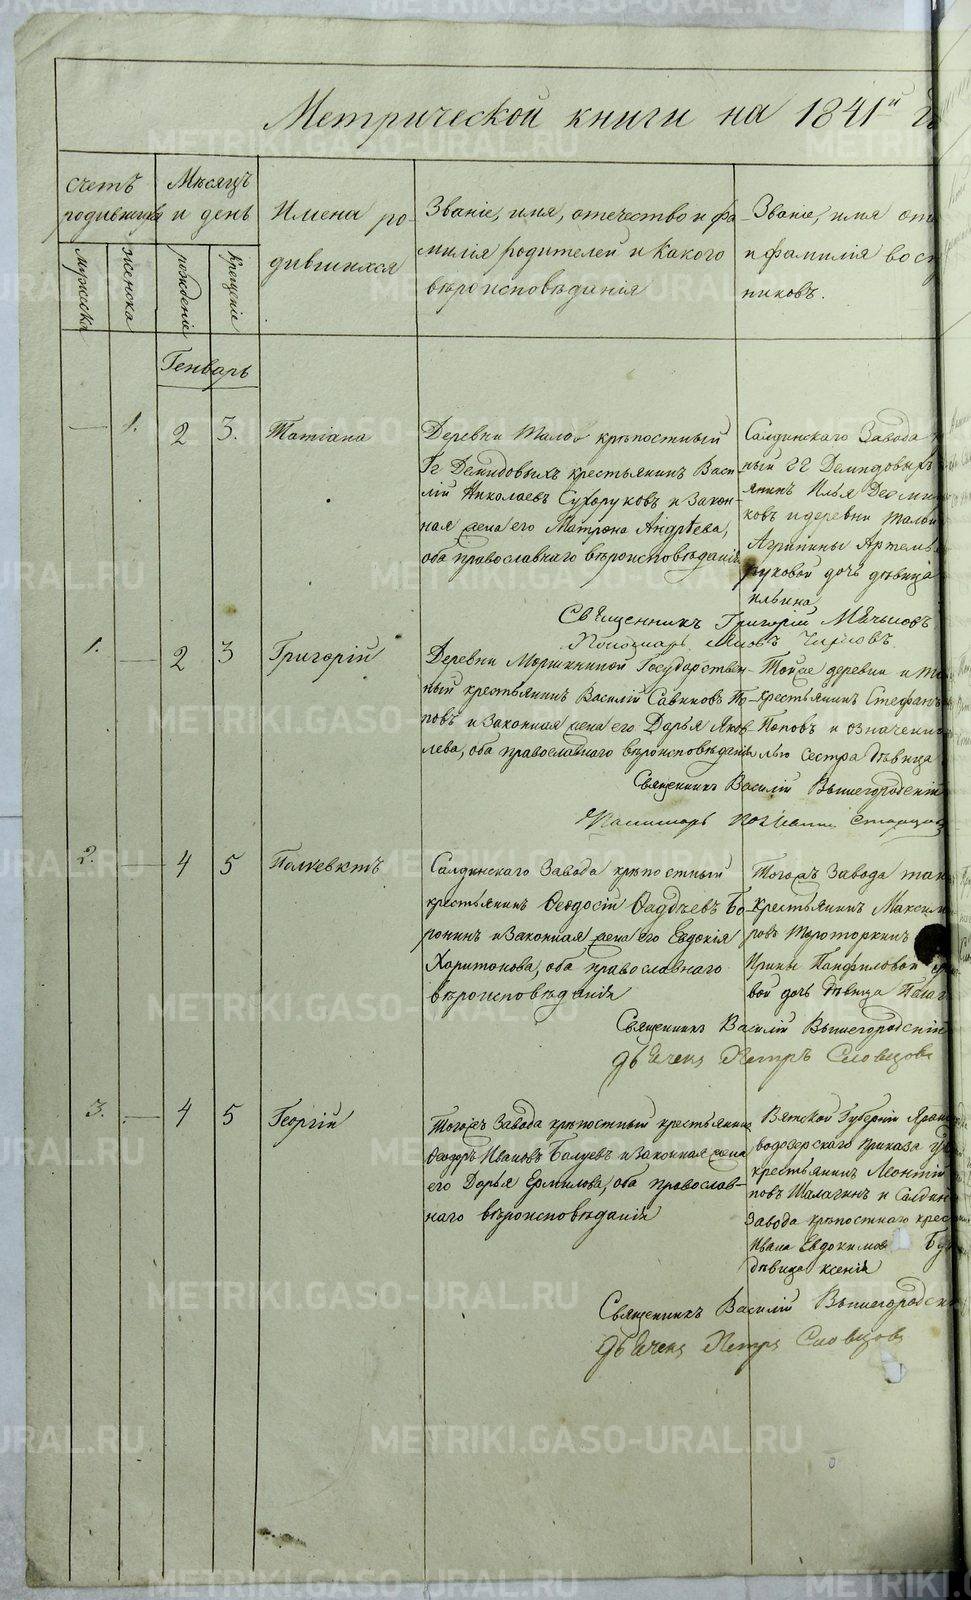 Метрической книги на 1841й
Счетъ
родившихся
Мѣсяцъ
и день
Имена ро-
дившихся
Званіе, имя, отечество и фа-
милія родителей и какого
вѣроисповѣданія
Званіе, имя
и фамилія
никовъ.
мужеска
женска
рожденія
крещенія
Генварь
1. 2 3. Татіана
Деревни крѣпостный
Гг Демидовыхъ крестьянинъ Васи-
лій Николаевъ Сухоруковъ и закон-
ная жена его Матрона Андрѣева,
оба православнаго вѣроисповѣданія
Салдинскаго Завода
ный гг Демидовыхъ
янинъ Илья
ковъ и деревни
Агрипины
руковой дочь дѣвица
Священникъ Григорій
Пономарь
1. 2 3 Григорій
Деревни Государствен-
ный крестьянинъ Василій Савиновъ По-
повъ и законная жена его Дарья Яков-
лева, оба православнаго вѣроисповѣданія
Тойже деревни и
крестьянинъ Стефанъ
Поповъ и означенн
сестра дѣвица
Священникъ Василій Вышегородскій
2. 4 5 Полуевктъ
Салдинскаго Завода крѣпостный
крестьянинъ Ѳеодосій Ѳаддѣевъ Бо-
ронинъ и законная жена его Евдокія
Харитонова, оба православнаго
вѣроисповѣданія
Тогожъ Завода
крестьянинъ Максим
ровъ
Ирины Панфиловой
вой дочь дѣвица
Священникъ Василій Вышегородскій
дьячекъ Петръ Словцовъ
3. 4 5 Георгій
Тогожъ Завода крѣпостный крестьянинъ
Ѳеодоръ Ивановъ Балуевъ и законная жена
его Дарья Ермилова, оба православ-
наго вѣроисповѣданія
Вятской Губерніи
приказа
крестьянинъ Леонтій
повъ Шалагинъ и Салдин
Завода крѣпостнаго крес
Ивана Евдокимов
дѣвица Ксенія
Священникъ Василій Вышегородск
дьячекъ Петръ Словцовъ
METRIKI.GASO-URAL.RU